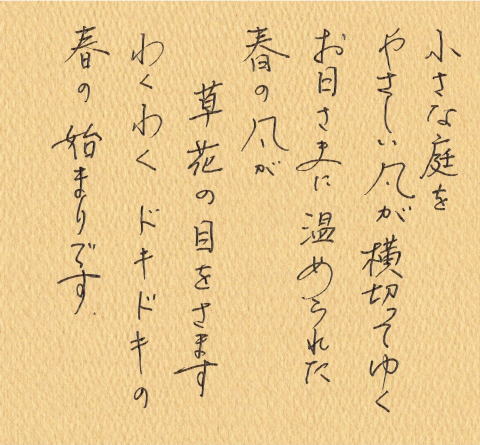 小さな庭を
やさしい風が横切ってゆく
お日さまに温められた
春の風が
草花の目をさます
わくわくドキドキの
春の始まりです